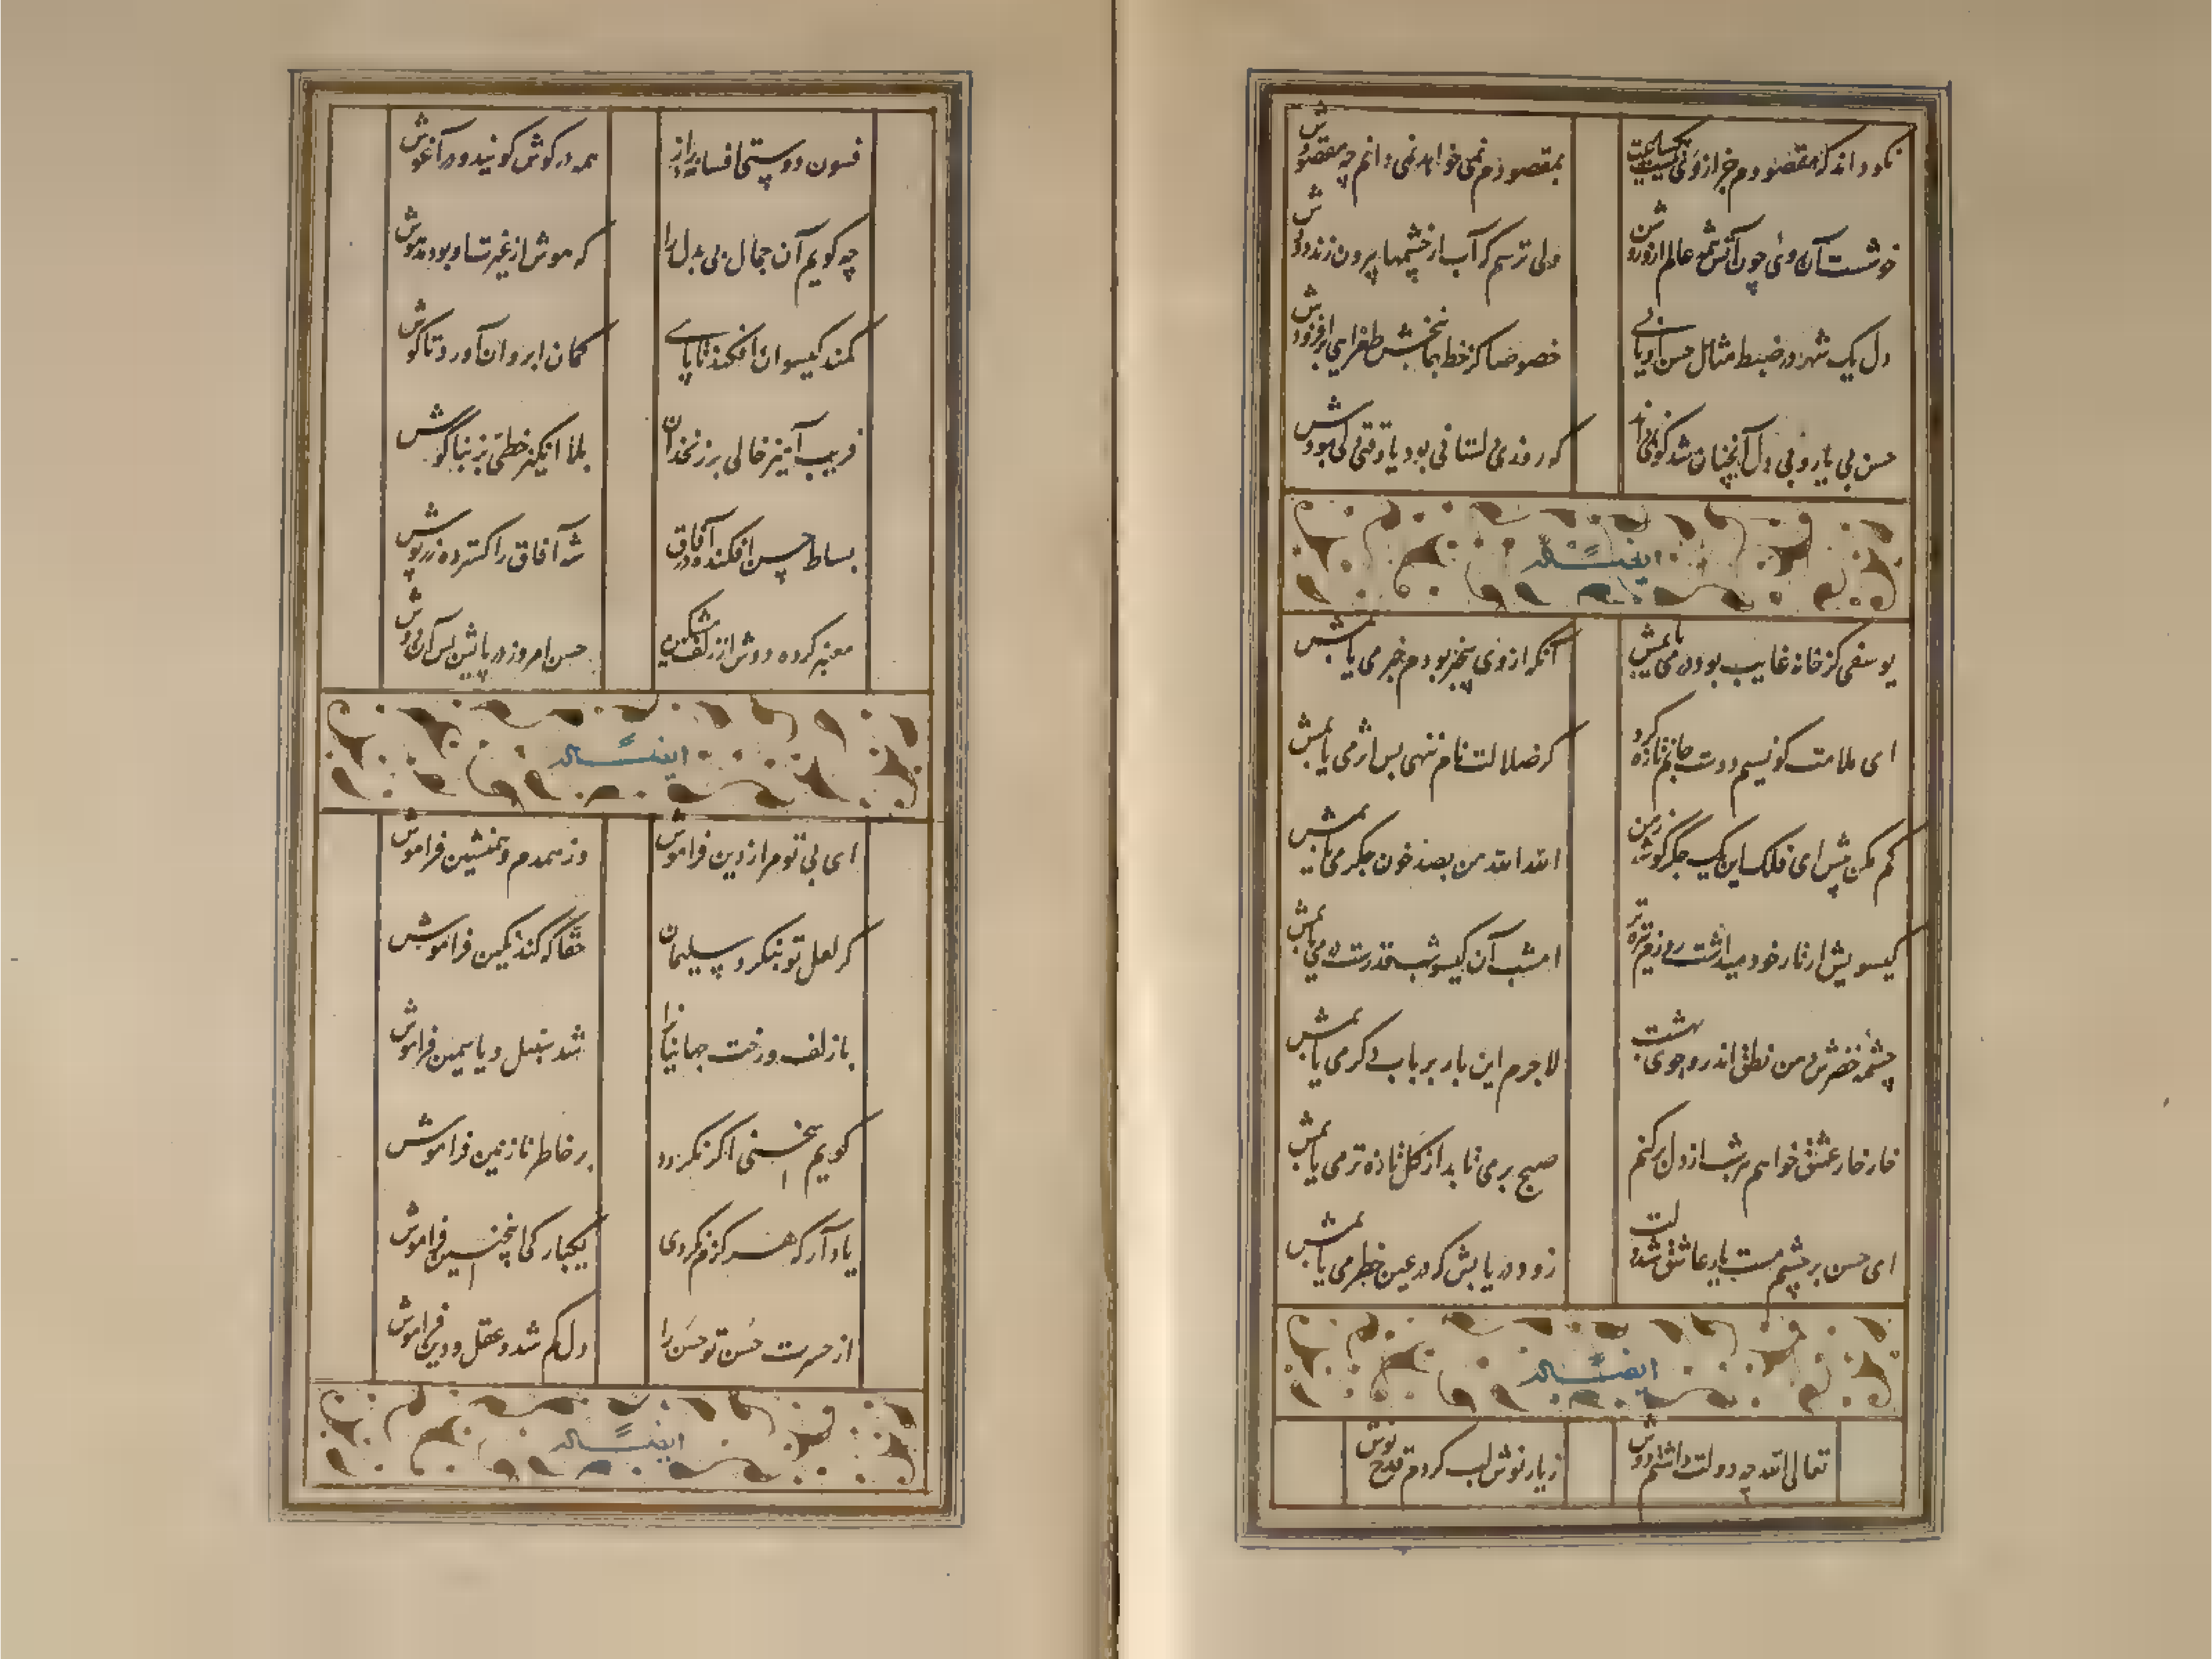 نکو داند که مقصودم جز از وی نیست
بمقصودم نمی خواهد نمی دانم چه مقصودش
خوشست آن روی چون آتش همه عالم
ولی ترسم که آب از چشمها بیرون زند دودش
دل یک شهر در ضبط مثال حسن
خصوصا کز خط طغرایی بر افزودش
حسن بی یار و بی دل آنچنان شد
که روزی دلستانی بود یا وقتی دلی بودش
ایضاً له
یوسفی کز خانه غایب بود در می یابمش
آنکه از وی بیخبر بودم خبر می یابمش
ای ملامت کو نسیم دوست جانم تازه کرد
کر ضلالت نام ننهی بس اثر می یابمش
کم مکن پیش ای فلک این یک جگر گوشه ز من
الله الله من بصد خون جگر می یابمش
کیسویش از تار خود میداشت روزم تیره تر
امشب آن کیسو شب قدرست در می یابمش
چشمه خضرش من نطق اندر و جوی بهشت
لاجرم این بار بر باب دکر می یابمش
خار خار عشق خواهم هر شب از دل برکنم
صبح بر می تابد از کل تازه تر می یابمش
ای حسن بر چشم مست یار عاشق شد دلت
زود دریابش که در عین خطر می یابمش
ایضاً له
تعالی الله چه دولت داشتم دوش
ز یار نوش لب کردم قدح نوش
فسون دوستی افسانه راز
همه در کوش کو نید و در آغوش
چه کویم آن جمال بی بدل را
که هوش از غیرت او بود مدهوش
کمند کیسوان افکند تا پای
کمان ابروان آورد تا کوش
فریب آمیز خالی بر زنخدان
بلا انکیز خطی بر بناکوش
بساط حسن افکنده در آفاق
شه آفاق را کسترده زرپوش
معنبر کرده دوش از زلف مشکین
حسن امروز در پایش پس آن دوش
ایضاً له
ای بی تو مرا ز دین فراموش
وز همدم و همنشین فراموش
کر لعل تو بنکرد سلیمان
حقا که کند نکین فراموش
با زلف و رخت جهانیان را
شد سنبل و یاسمین فراموش
کویم سخنی اکر نکردد
بر خاطر نازنین فراموش
یاد آر که هرکزم نکردی
یکبار کی اینچنین فراموش
از حسرت حسن تو حسن را
دل کم شد و عقل و دین فراموش
ایضاً له